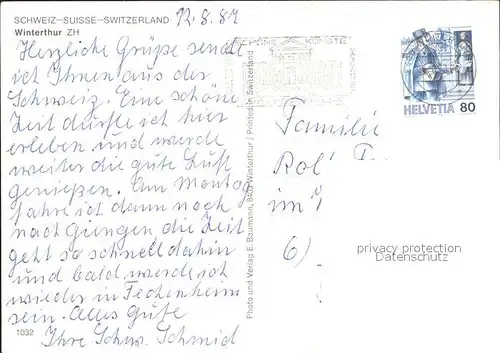 SCHWEIZ–SUISSE–SWITZERLAND
Winterthur ZH
12.8.87
Herzliche Grüße sendet
ich Ihnen aus der
Schweiz. Eine schöne
Zeit dürfte ich hier
erleben und werde
weiter die gute Luft
genießen. Am Montag
fahre ich dann noch
nach Giengen die Zeit
geht so schnell dahin
und bald werde ich
wieder in Fechenheim
sein. Alles Gute
Ihre Schw. Schmid
1032
Photo und Verlag E. Baumann, 8400 Winterthur / Printed in Switzerland
SCHÖNE KÜNSTE
HELVETIA 80
Familie
Rol
im
6)
privacy protection
Datenschutz